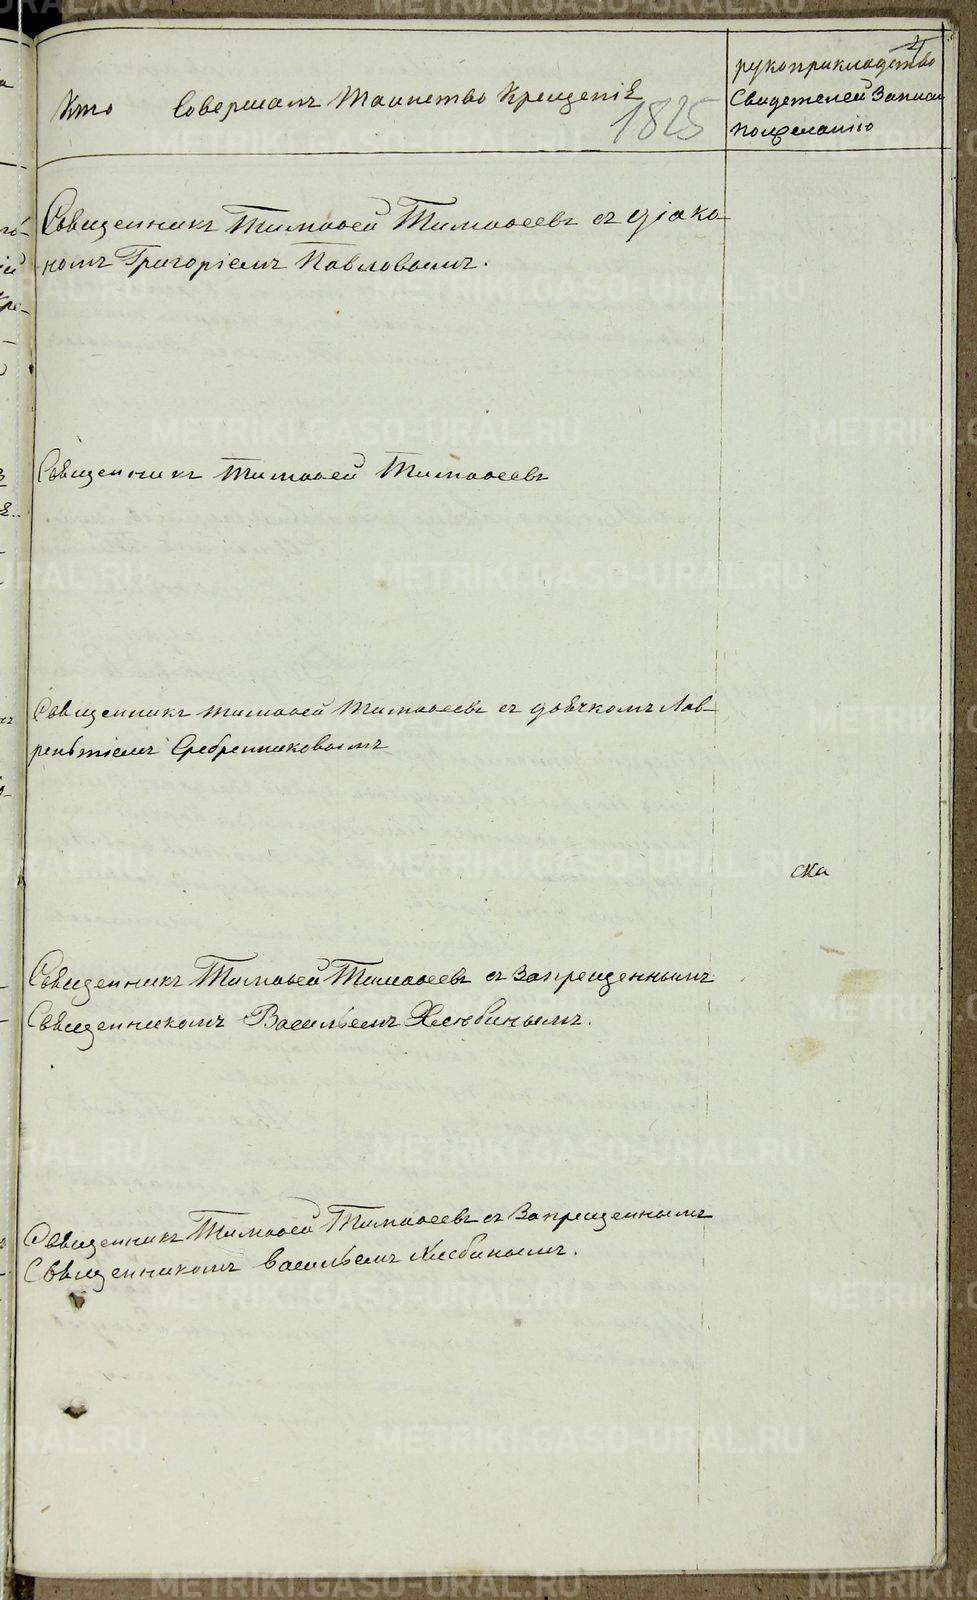 Кто Совершалъ Таинство Крещенія
1825
рукоприкладство
Свидетелей Записи
по желанію
Священникъ Тимоѳей Тимоѳеевъ съ діако-
номъ Григоріемъ Павловымъ.
Священникъ Тимоѳей Тимоѳеевъ
Священникъ Тимоѳей Тимоѳеевъ съ дьячкомъ Лав-
рентіемъ Сребренниковымъ
ска
Священникъ Тимоѳей Тимоѳеевъ съ Запрещеннымъ
Священникомъ Васильемъ Хлюбинымъ.
Священникъ Тимоѳей Тимоѳеевъ съ Запрещеннымъ
Священникомъ Васильемъ
METRIKI.GASO-URAL.RU